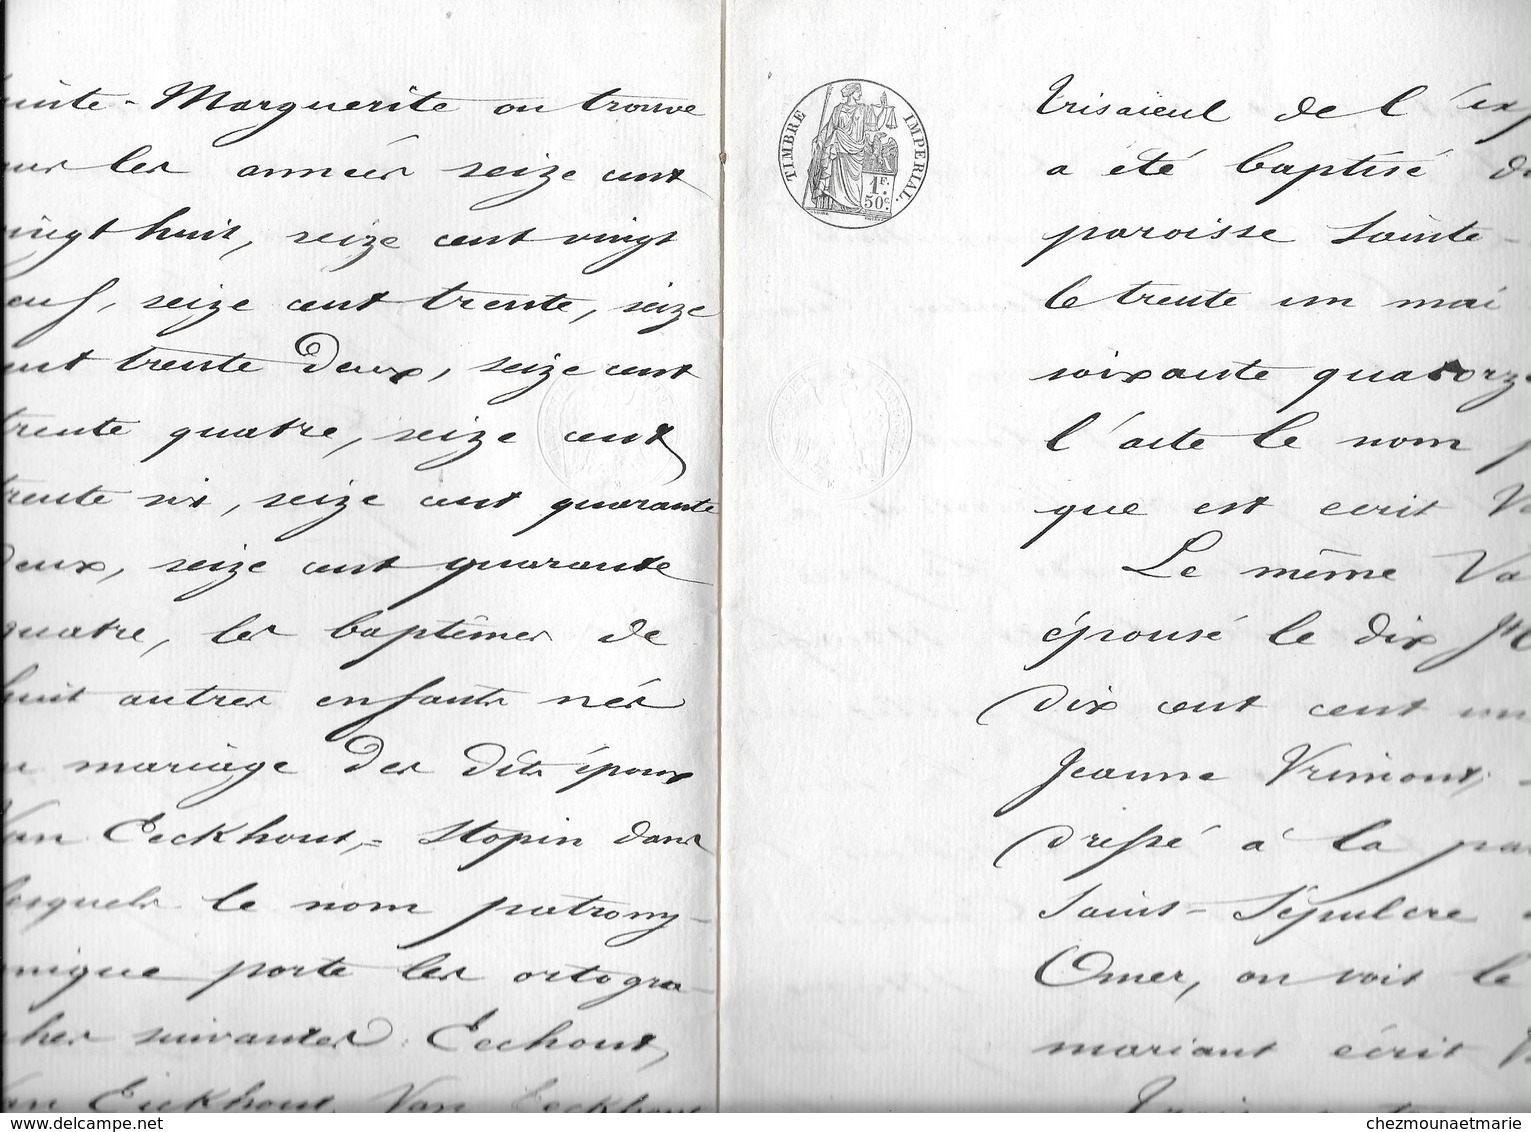 ainte - Marguerite on trouve
our les années seize cent
vingt huit, seize cent vingt
neuf, seize cent trente, seize
cent trente deux, seize cent
trente quatre, seize cent
trente six, seize cent quarante
deux, seize cent quarante
quatre, les baptêmes de
huit autres enfants nés
mariage des dits époux
Van Eeckhout, = Stopin dans
lesquels le nom patrony-
mique porte les ortogra-
phes suivantes : Eechout,
Van Eickhout, Van Eeckhout
TIMBRE IMPERIAL.
1F. 50c.
trisaieul de l'ex
a été baptisé d
paroisse Sainte -
le trente un mai
soixante quatorze
l'acte le nom p
que est ecrit V
Le même Va
épousé le dix
dix cent cent un
Jeanne Vrimont,
dressé à la pa
Saint - Sépulcre
Omer, on voit le
mariant écrit V
chezmounaetmarie